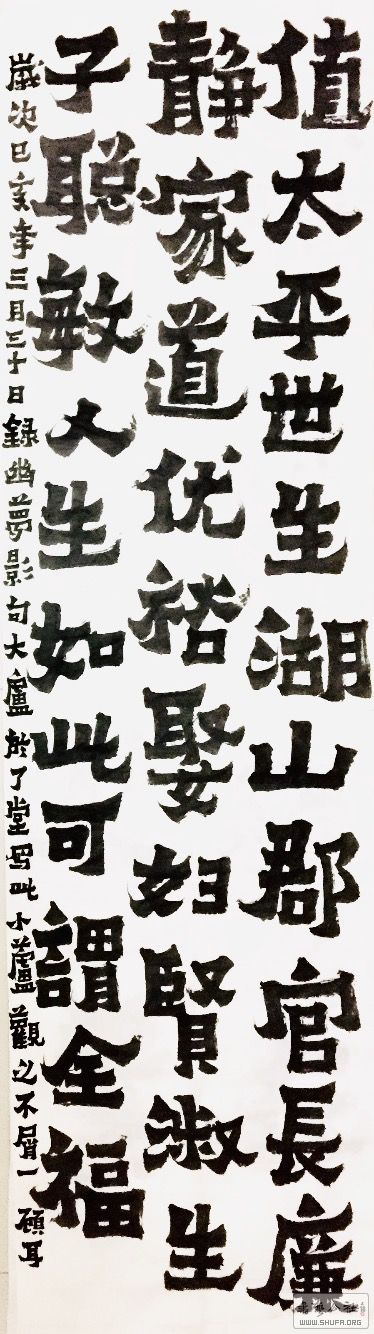 值太平世生湖山郡官長廉
静家道优裕娶妇賢淑生
子聪敏人生如此可謂全福
歲次已亥年三月三十日録幽夢影句大廬於了堂写此小蘆觀之不屑一顧耳
WWW.SHUFA.ORG